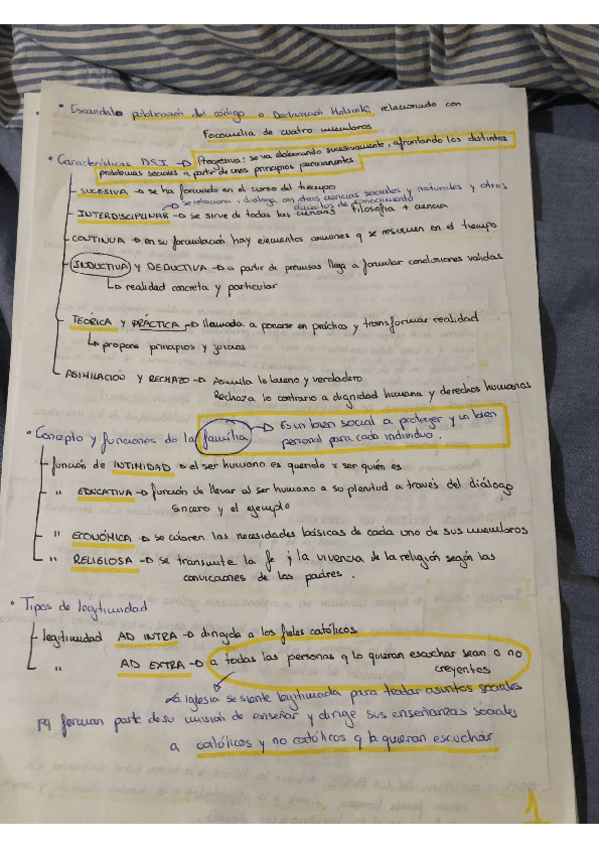 • Escandalo publicación del código o Declaración Helsinki, relacionado con
Focomelia de cuatro miembros
• Características DSI → Progresiva: se va elaborando sucesivamente, afrontando los distintos
problemas sociales a partir de unos principios permanentes
SUCESIVA → se ha formado en el curso del tiempo
se relaciona y dialoga con otras ciencias sociales y naturales y otros
ámbitos de conocimiento
INTERDISCIPLINAR → se sirve de todas las ciencias filosofía + ciencia
CONTINUA → en su formulación hay elementos comunes q se resumen en el tiempo
INDUCTIVA Y DEDUCTIVA → a partir de premisas llega a formular conclusiones validas
↳ realidad concreta y particular
TEÓRICA Y PRÁCTICA → llamada a ponerse en práctica y transformar realidad
↳ propone principios y juicios
ASIMILACIÓN Y RECHAZO → Asimila lo bueno y verdadero
Rechaza lo contrario a dignidad humana y derechos humanos
• Concepto y funciones de la familia → Es un bien social a proteger y un bien
personal para cada individuo.
función de INTIMIDAD → el ser humano es querido x ser quién es
" EDUCATIVA → función de llevar al ser humano a su plenitud a través del diálogo
sincero y el ejemplo
" ECONÓMICA → se cubren las necesidades básicas de cada uno de sus miembros
" RELIGIOSA → se transmite la fe y la vivencia de la religión según las
convicciones de los padres.
• Tipos de legitimidad
legitimidad AD INTRA → dirigida a los fieles católicos
" AD EXTRA → a todas las personas q lo quieran escuchar sean o no
creyentes
La iglesia se siente legitimada para tratar asuntos sociales
pq forman parte de su misión de enseñar y dirige sus enseñanzas sociales
a católicos y no católicos q la quieran escuchar
1